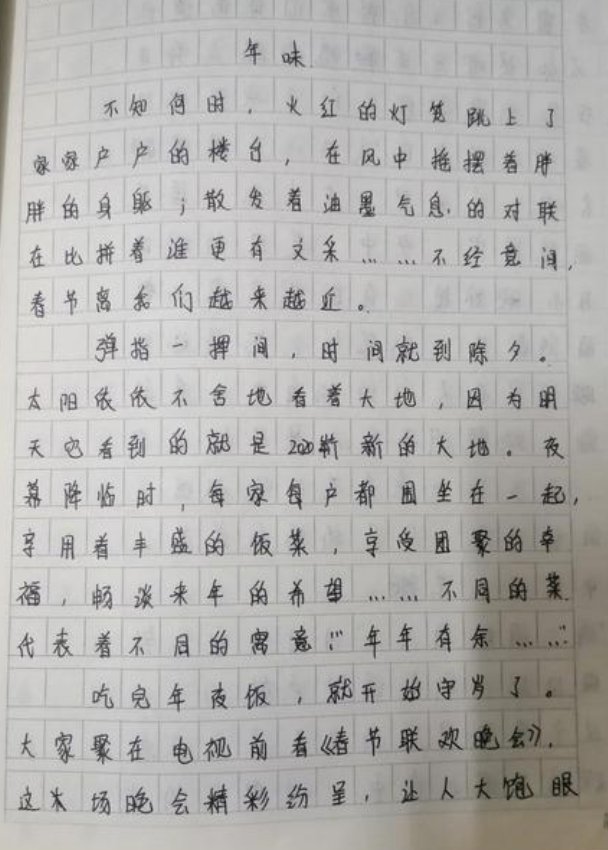 年味
不知何时，火红的灯笼跳上了
家家户户的楼台，在风中摇摆着胖
胖的身躯；散发着油墨气息的对联
在比拼着谁更有文采……不经意间，
春节离我们越来越近。
弹指一挥间，时间就到除夕。
太阳依依不舍地看着大地，因为明
天它看到的就是2020崭新的大地。夜
幕降临时，每家每户都围坐在一起，
享用着丰盛的饭菜，享受团聚的幸
福，畅谈来年的希望……不同的菜
代表着不同的寓意：“年年有余……”
吃完年夜饭，就开始守岁了。
大家聚在电视前看《春节联欢晚会》，
这场晚会精彩纷呈，让人大饱眼